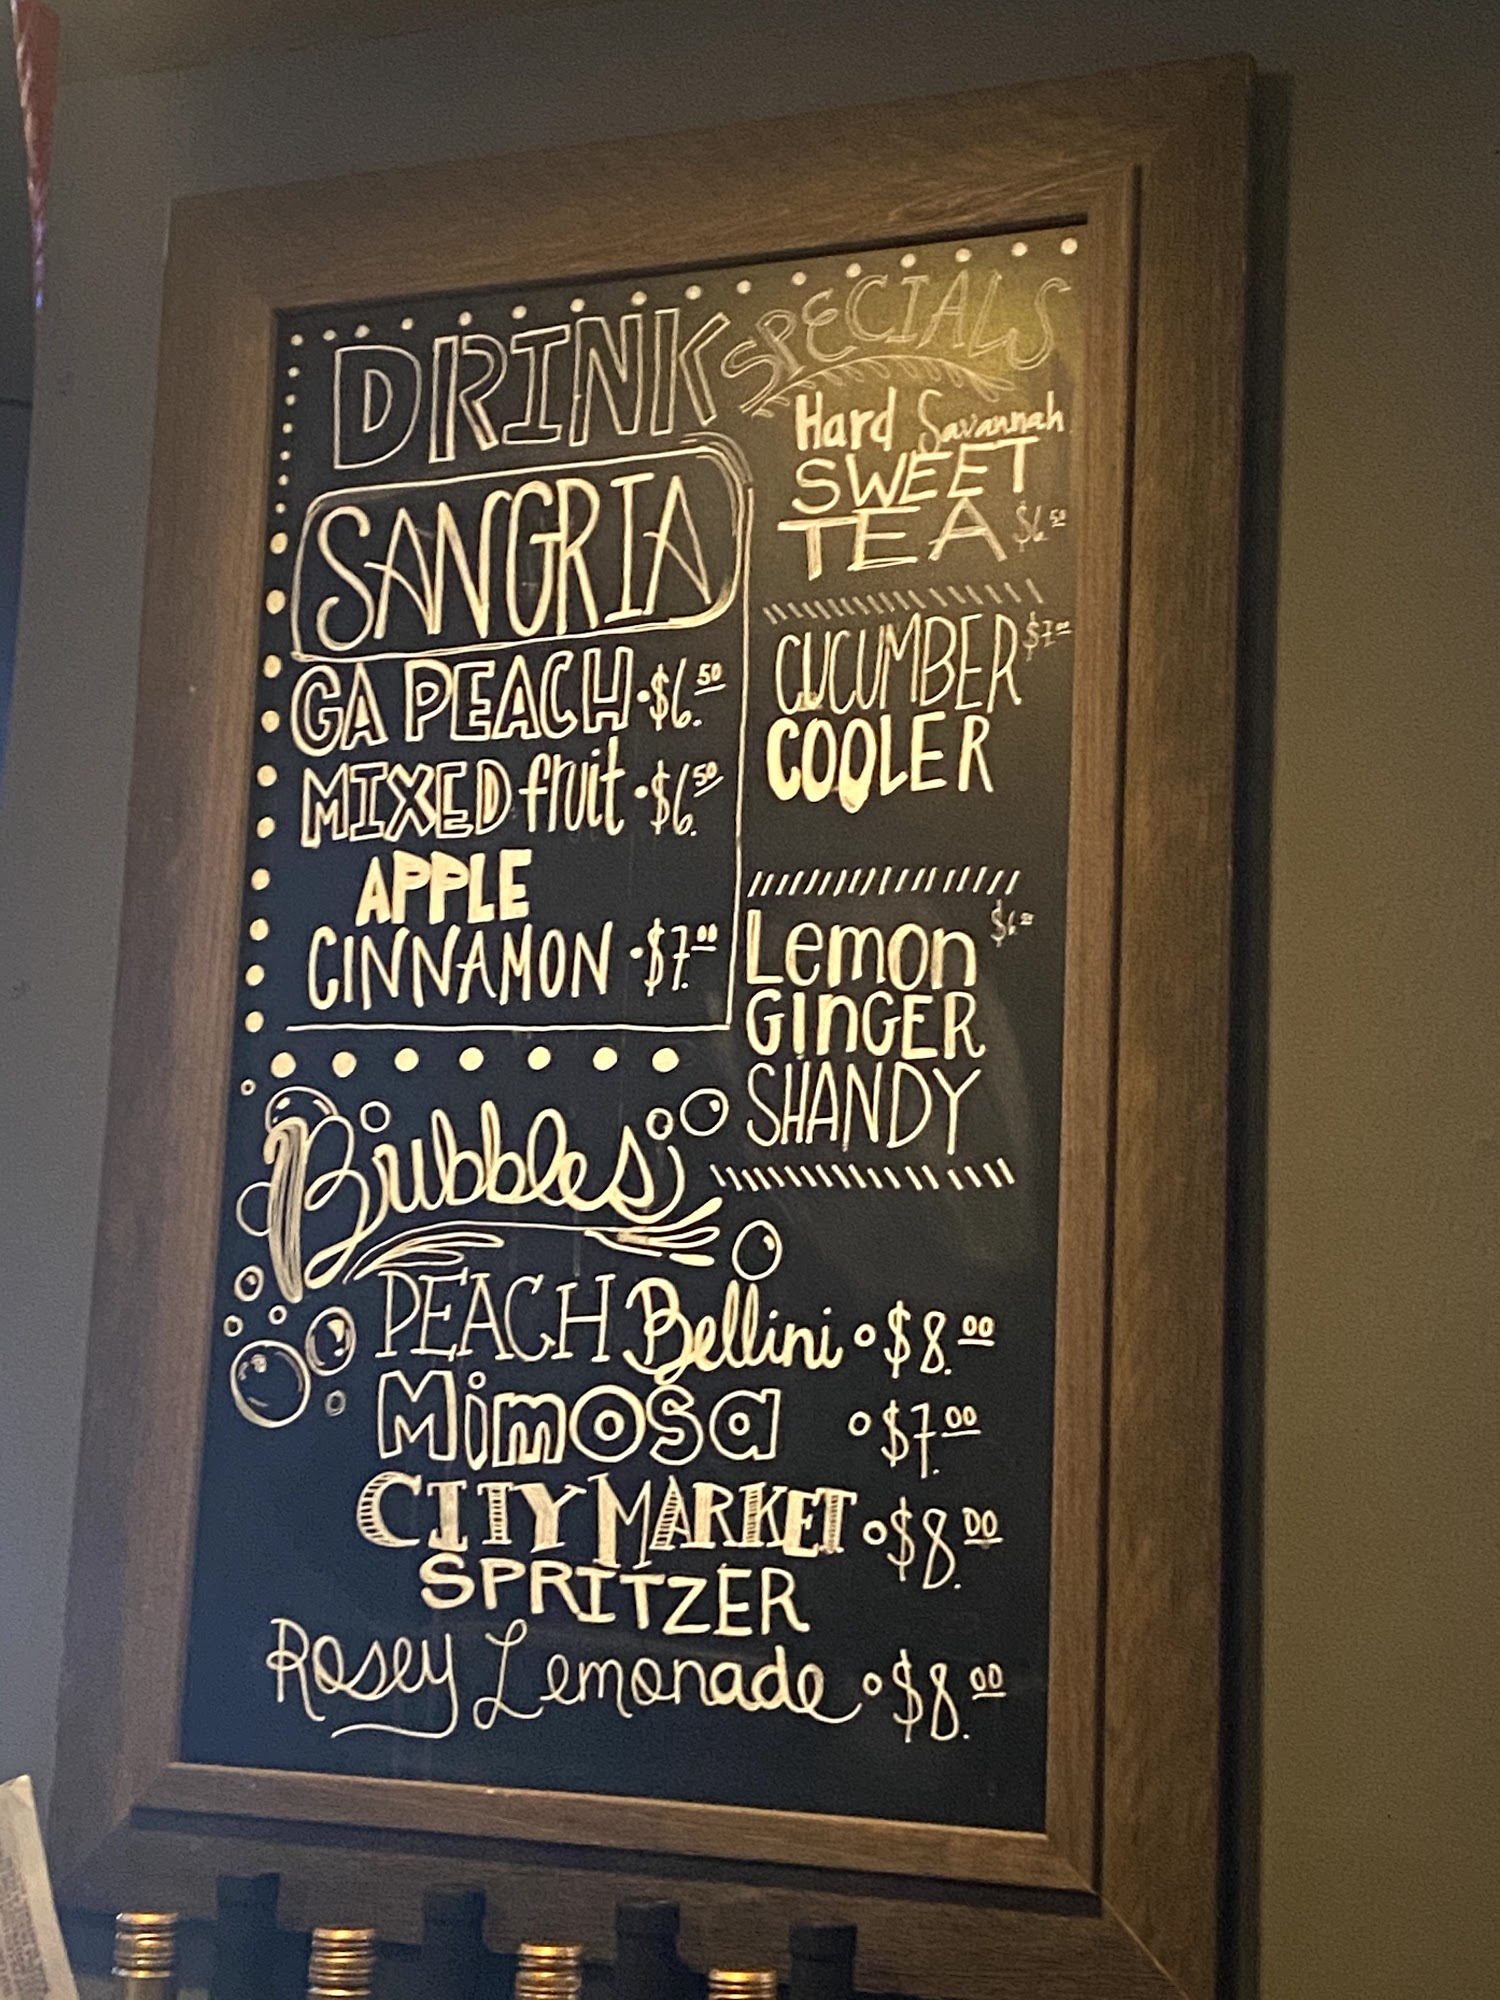 DRINK SPECIALS
SANGRIA
GA PEACH · $6.50
MIXED fruit · $6.50
APPLE
CINNAMON · $7.00
Hard Savannah
SWEET
TEA $6.50
CUCUMBER $7.00
COOLER
Lemon $6.50
GINGER
SHANDY
Bubbles
PEACH Bellini $8.00
Mimosa $7.00
CITY MARKET $8.00
SPRITZER
Rosey Lemonade $8.00